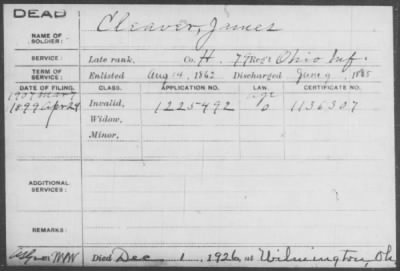 DEAD
NAME OF SOLDIER: Cleaver, James
SERVICE: Late rank, Co. H. 79 Reg't Ohio Inf.
TERM OF SERVICE: Enlisted Aug 14, 1862 Discharged June 9, 1865
DATE OF FILING. CLASS. APPLICATION NO. LAW. CERTIFICATE NO.
1907 Mar 7 age
1899 Apr 24 Invalid, 1225492 O 1136307
Widow,
Minor,
ADDITIONAL SERVICES:
Died Dec 1, 1926, at Wilmington, Oh.